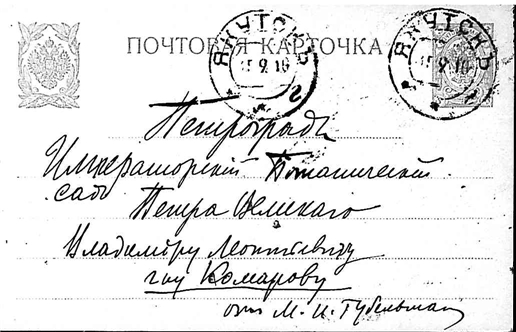 ПОЧТОВАЯ КАРТОЧКА
ЯКУТСКЪ
ЯКУТСКЪ
Петроградъ
Императорскій Ботаническій
садъ
Петра Великаго
Владиміру Леонтьевичу
Комарову
отъ М. И. Губельман